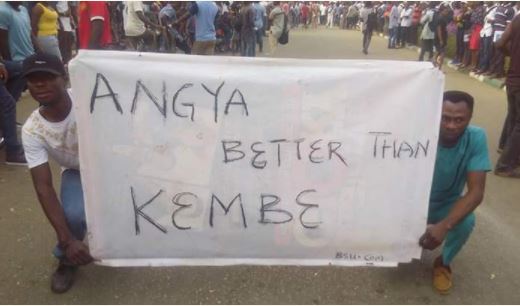 ANGYA
BETTER THAN
KEMBE
BSU.COM